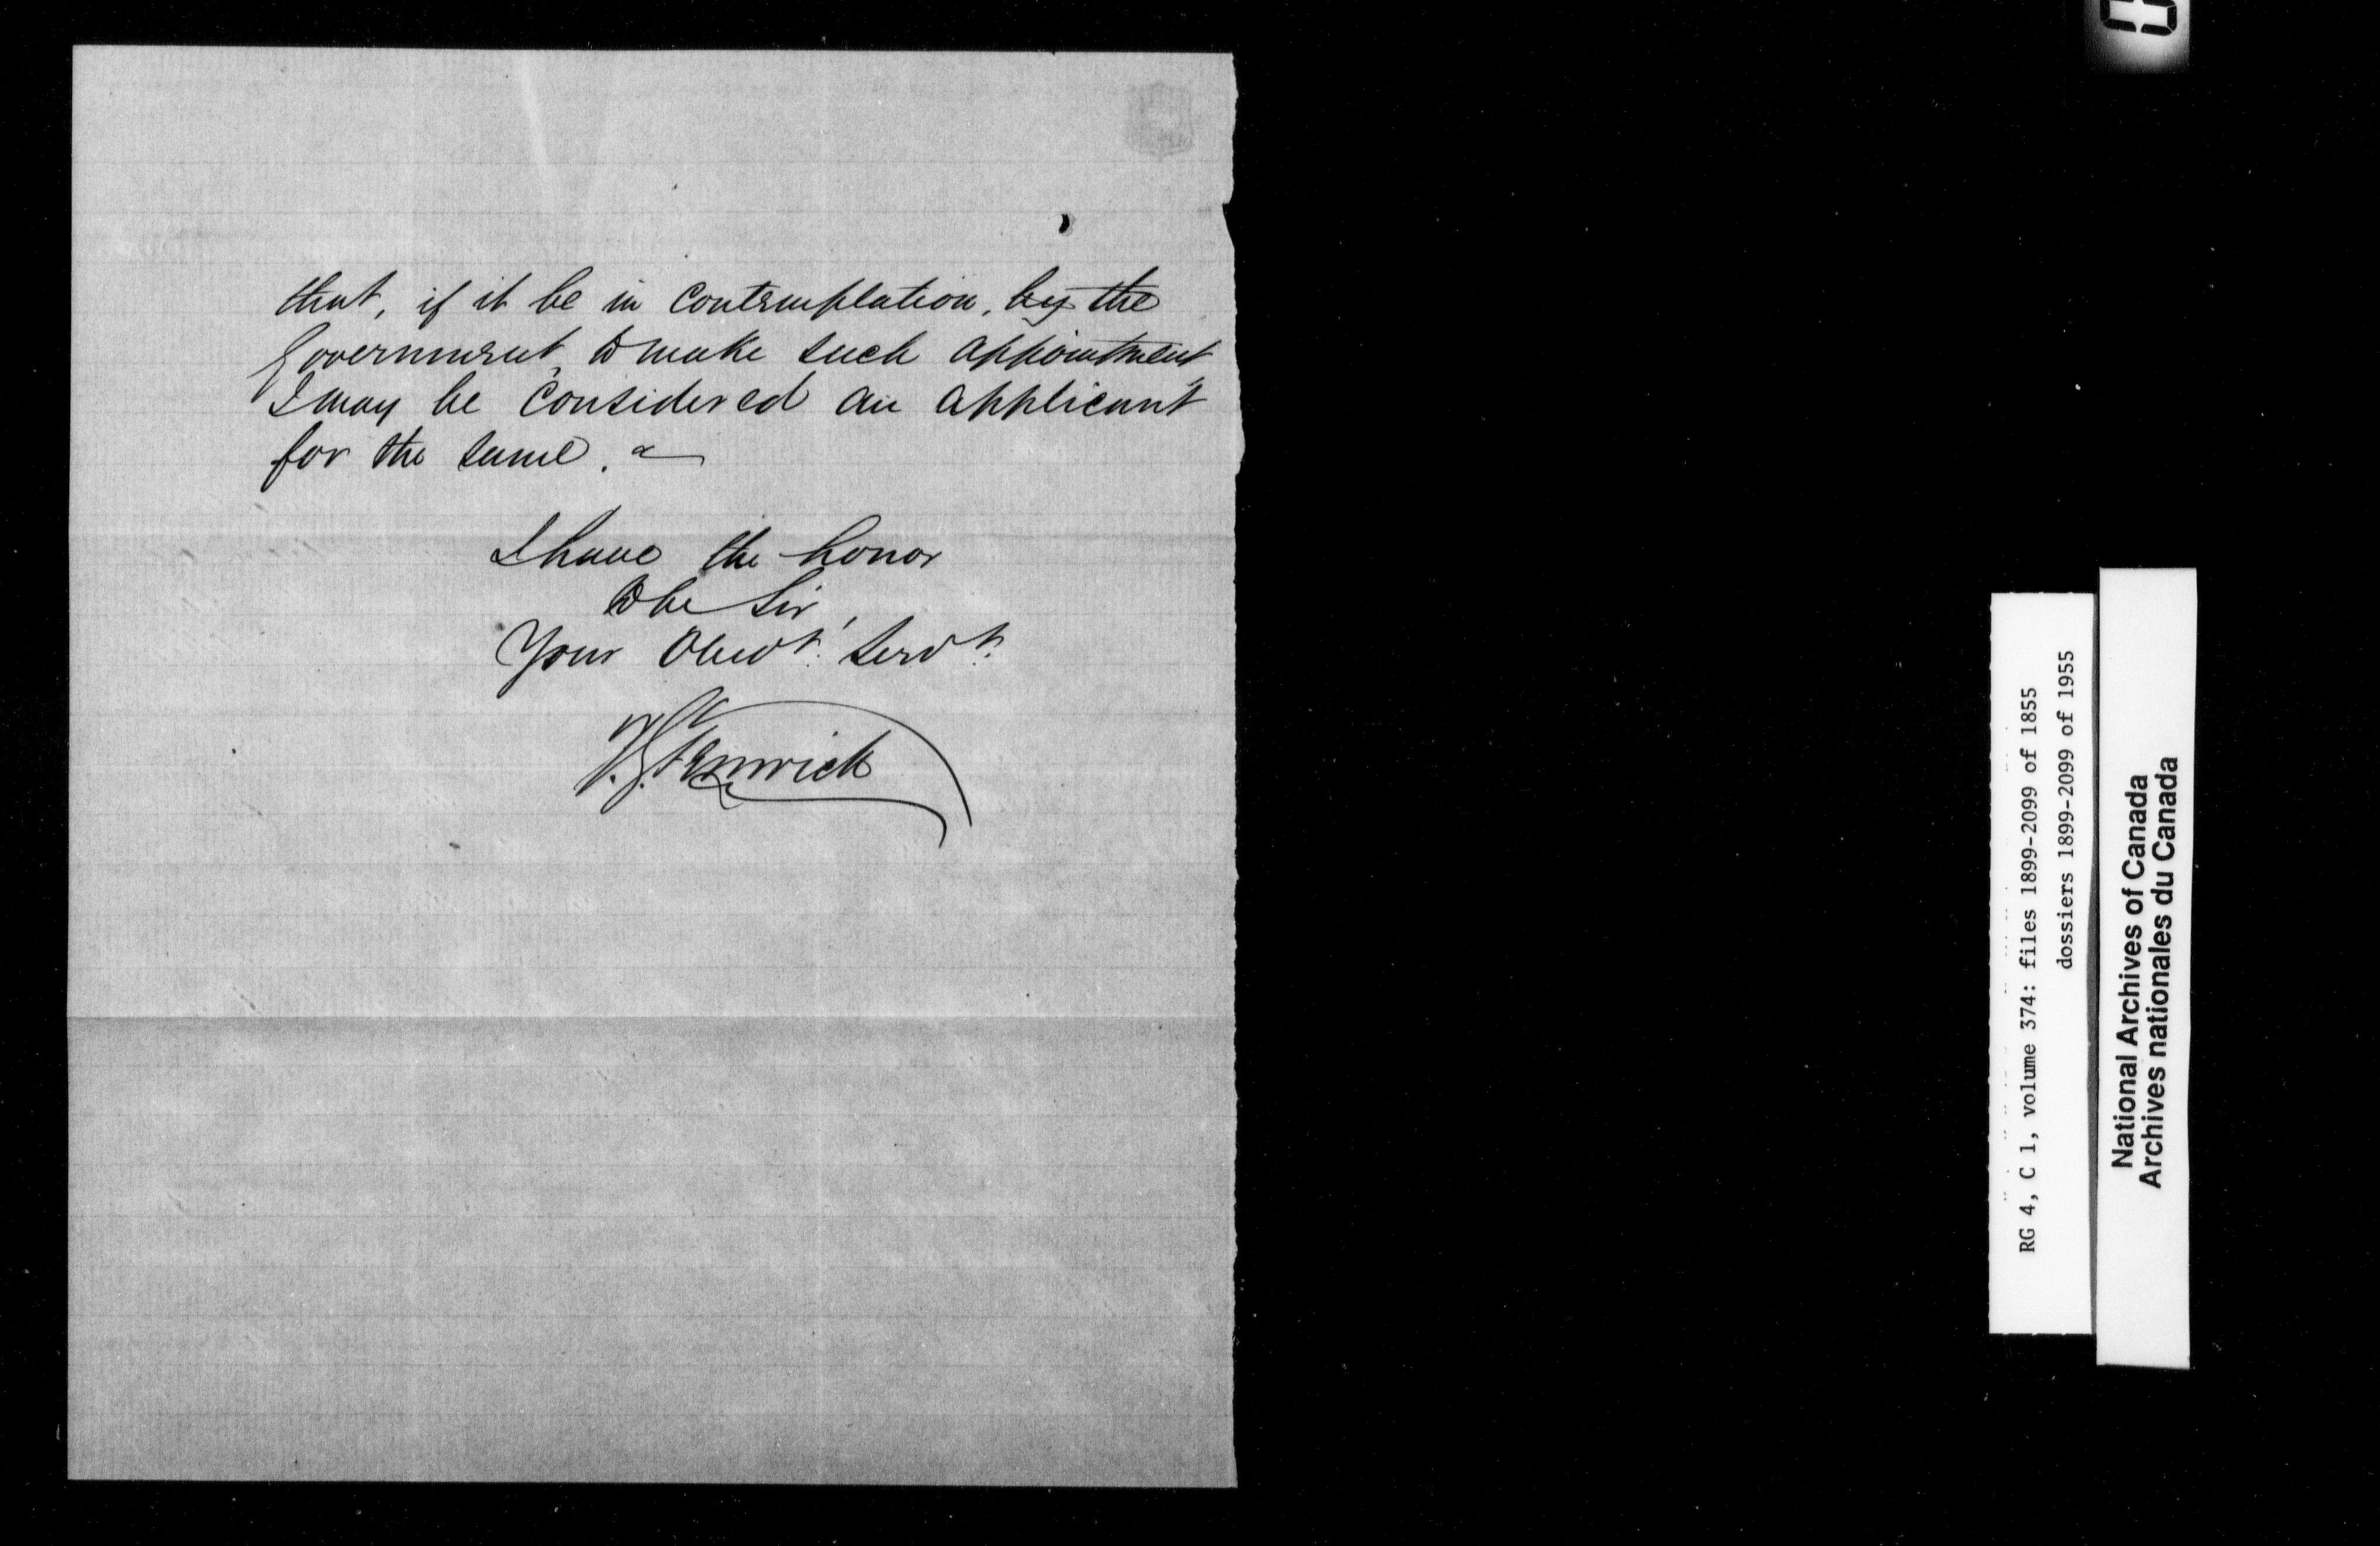 that, if it be in contemplation, by the
Government, to make such appointment,
I may be considered an applicant
for the same.
I have the honor
to be Sir,
Your Obedt. Servt.
RG 4, C 1, volume 374: files 1899-2099 of 1855
dossiers 1899-2099 of 1955
National Archives of Canada
Archives nationales du Canada